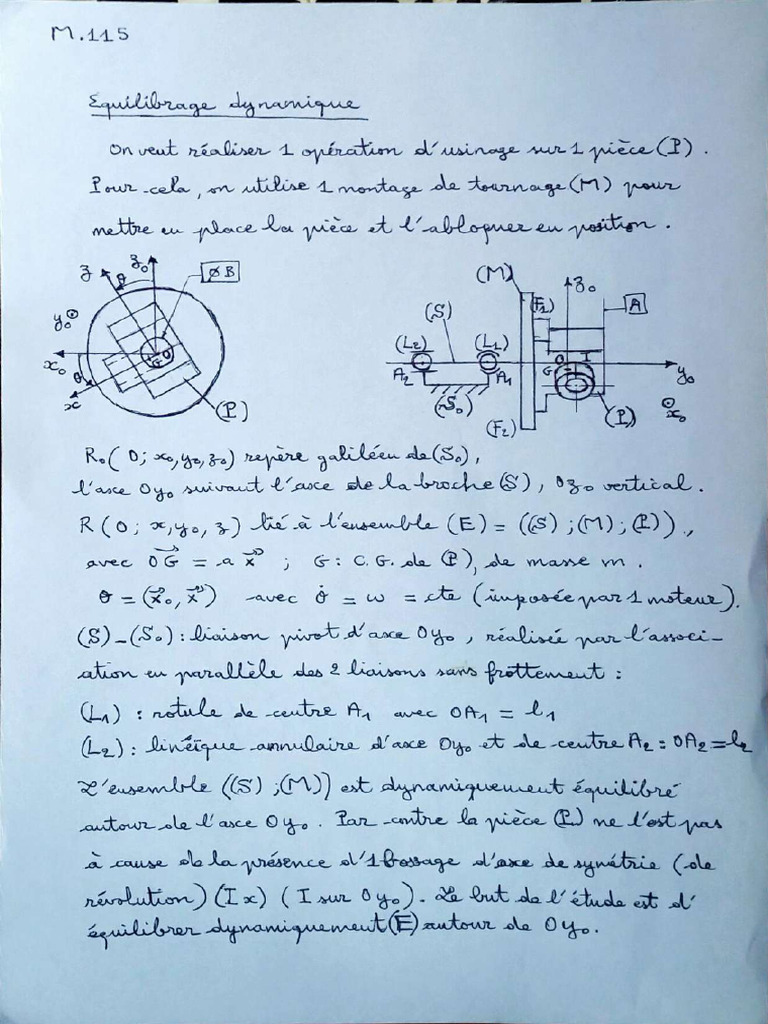 M.115
Equilibrage dynamique
On veut réaliser 1 opération d'usinage sur 1 pièce (P).
Pour cela, on utilise 1 montage de tournage (M) pour
mettre en place la pièce et l'abloquer en position.
z θ z₀ ØB
y₀ x₀ θ x G O (P)
(M) z₀ (F₁) A
(S) (L₂) (L₁) A₂ A₁ (S₀) O I G y₀ x₀ (P) (F₂)
R₀( O; x₀, y₀, z₀) repère galiléen de (S₀),
l'axe Oy₀ suivant l'axe de la broche (S), Oz₀ vertical.
R (O; x, y₀, z) lié à l'ensemble (E) = ((S) ; (M) ; (P)),
avec OG⃗ = a x⃗ ; G : C.G. de (P), de masse m.
θ = (x⃗₀, x⃗) avec θ̇ = ω = cte (imposée par 1 moteur).
(S)-(S₀) : liaison pivot d'axe Oy₀, réalisée par l'associ-
ation en parallèle des 2 liaisons sans frottement :
(L₁) : rotule de centre A₁ avec OA₁ = l₁
(L₂) : linéïque annulaire d'axe Oy₀ et de centre A₂ : OA₂ = l₂
L'ensemble ((S) ; (M)) est dynamiquement équilibré
autour de l'axe Oy₀. Par contre la pièce (P) ne l'est pas
à cause de la présence d'1 bossage d'axe de symétrie (de
révolution) (Ix) (I sur Oy₀). Le but de l'étude est d'
équilibrer dynamiquement (E) autour de Oy₀.